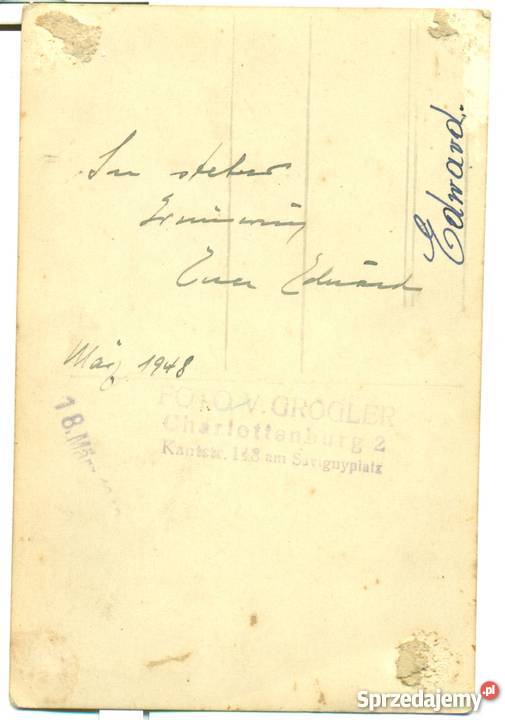 steter
Erinnerung
Euer Eduard
Edward.
März 1948
FOTO V. GROGLER
Charlottenburg 2
Kantstr. 148 am Savignyplatz
18.März
Sprzedajemy.pl